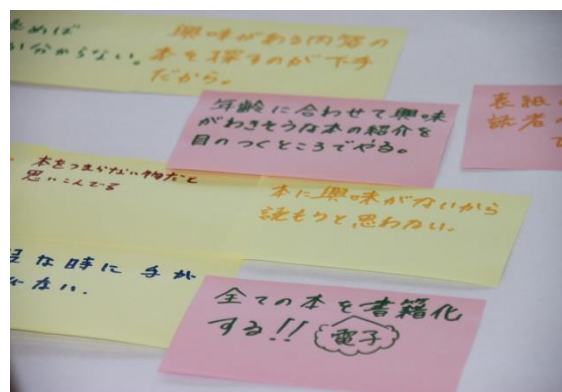 めば
分からない。
興味がある内容の
本を探すのが下手
だから。
年齢に合わせて興味
がわきそうな本の紹介を
目のつくところでやる。
表紙
読者
本をつまらない物だと
思いこんでる
本に興味がないから
読もうと思わない。
な時に手が
ない.
全ての本を書籍化
する!!
電子